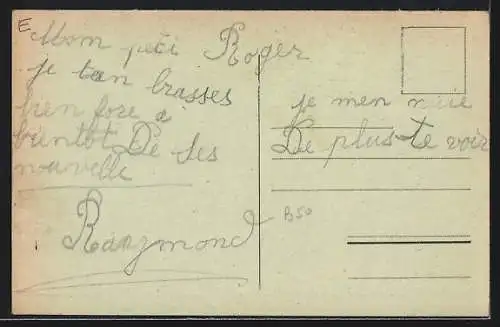 E
Mom peti Roger
je tan brasses
bien fore a
bientot De tes
nouvelle
Raymond
je men nuie
De plus te voir
B50